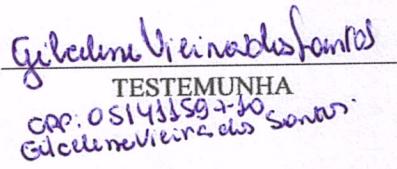 Gilcelene Vieira dos Santos
TESTEMUNHA
CPF: 051411597-10
Gilcelene Vieira dos Santos.